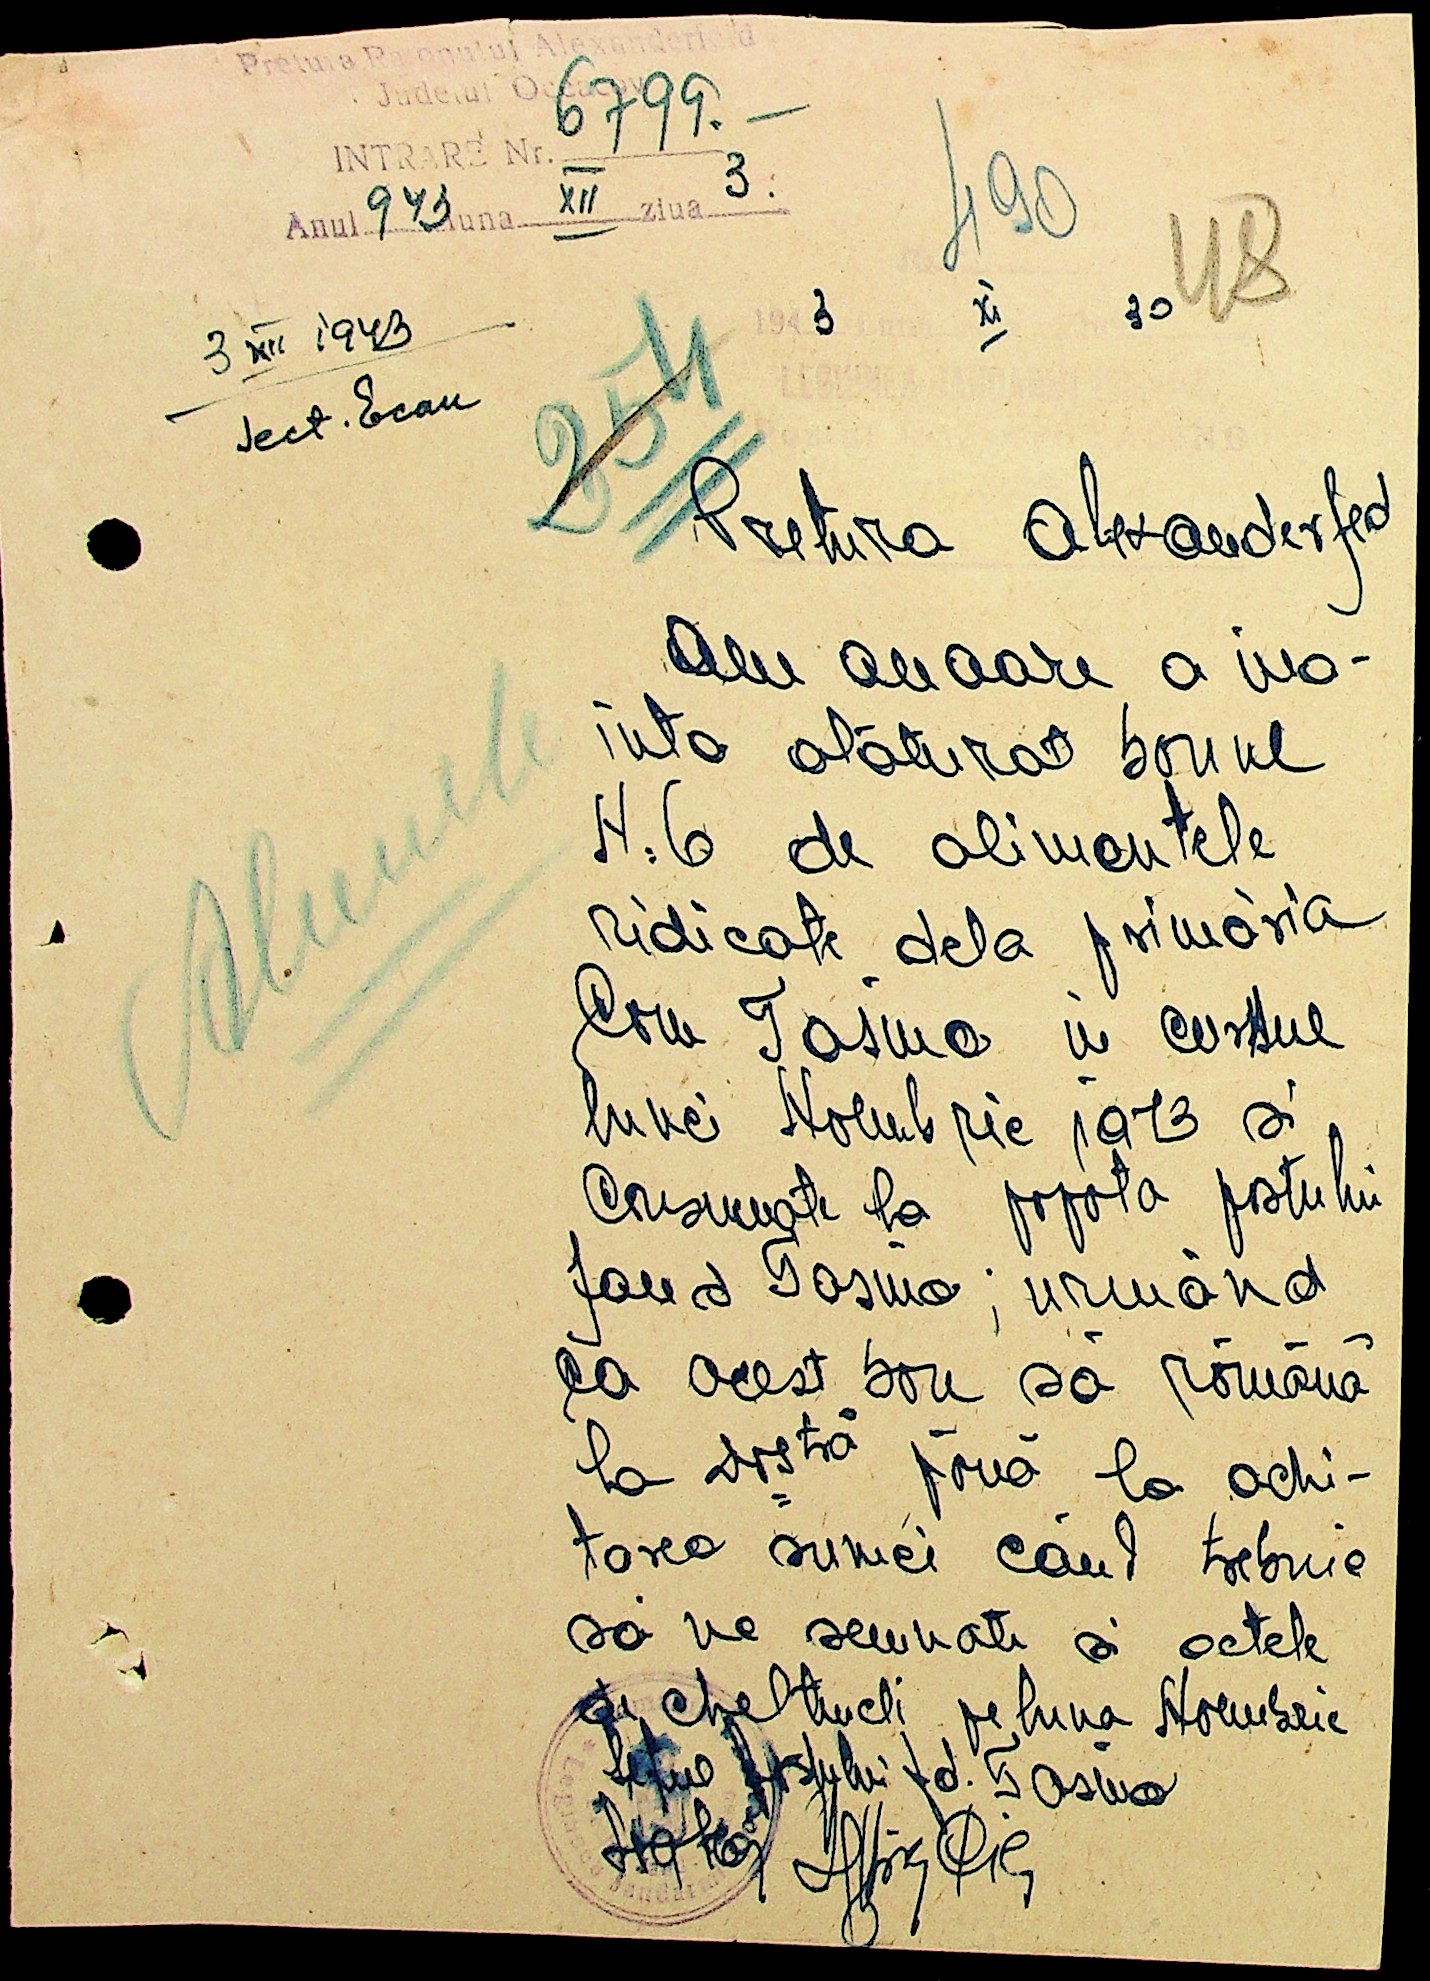 Pretura Raionului Alexanderfeld
Judetul Oceacov
INTRARE Nr. 6799.-
Anul 943 luna XII ziua 3.
490
48
3 XI 30
194
3 XII 1943
Sect. Econ
254
Alimente
Pretura Alexanderfed
Am onoare a ina-
inta alăturat bonul
N:6 de alimentele
ridicate dela primăria
Com Tasino in cursul
lunei Noembrie 1943 si
consumate la popota postului
Jand Tasino; urmând
ca acest bon să rămână
la Dvs tră până la achi-
tarea sumei când trebuie
să ne semnati si actele
de cheltueli pe luna Noembrie
Seful Postului Jd. Tasino